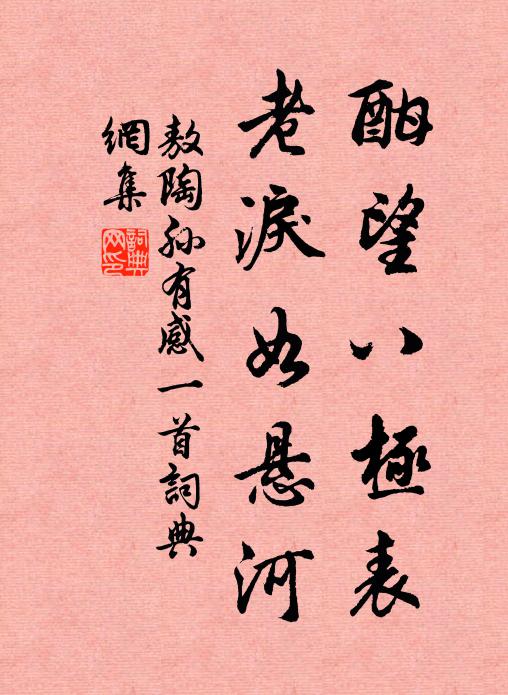 酣望八極表
老淚如悬河
敖陶孙有感一首詞典
網集
詞典网印